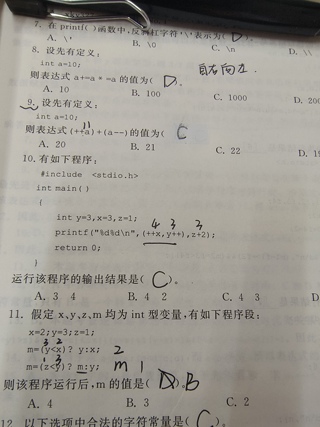 7. 在 printf( )函数中,反斜杠字符'\'表示为( D )。
A. \' B. \0 C. \n D. \\
8. 设先有定义:
int a=10; 自右向左.
则表达式 a+=a*=a 的值为( D.
A. 10 B. 100 C. 1000 D. 200
9. 设先有定义:
int a=10; 11
则表达式(++a)+(a--)的值为( C
A. 20 B. 21 C. 22 D. 19
10. 有如下程序:
#include <stdio.h>
int main( )
{
int y=3,x=3,z=1; 4 3 3
printf("%d%d\n",(++x,y++),z+2);
return 0;
}
运行该程序的输出结果是( C )。
A. 3 4 B. 4 2 C. 4 3 D.
11. 假定 x、y、z、m 均为 int 型变量,有如下程序段:
x=2;y=3;z=1;
3 2
m=(y<x)? y:x; 2
m=(z<y)? m:y; m 1
则该程序运行后,m 的值是( D )。B
A. 4 B. 3 C. 2
12. 以下选项中合法的字符常量是( C )。